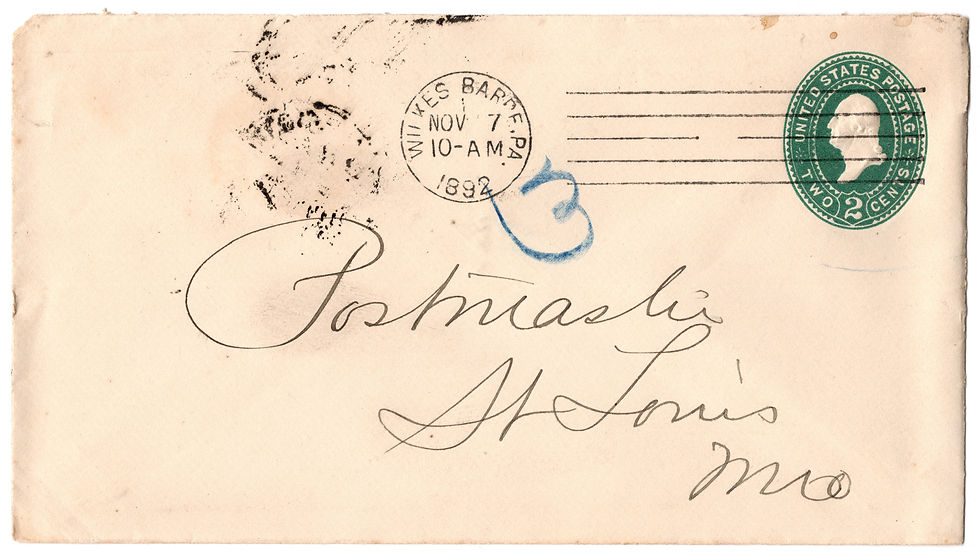 WILKES BARRE, PA
NOV 7
10-AM
1892
UNITED STATES POSTAGE
TWO 2 CENTS
3
Postmaster
St Louis
Mo